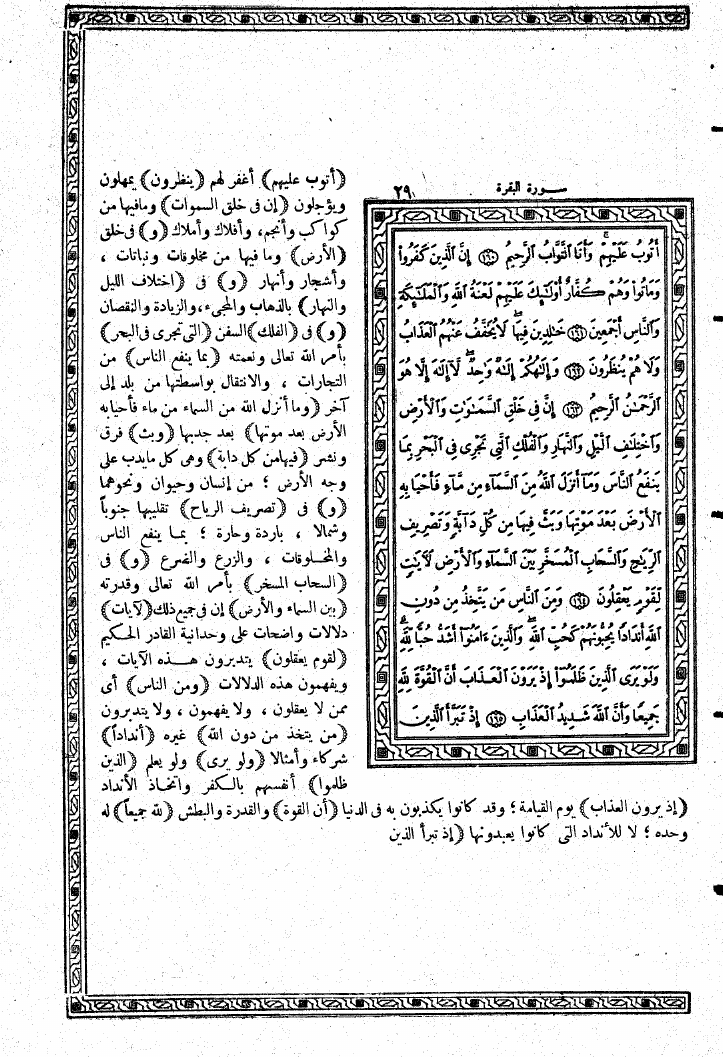 سورة البقرة ٢٩
أَتُوبُ عَلَيْهِمْ وَأَنَا التَّوَّابُ الرَّحِيمُ ١٦٠ إِنَّ الَّذِينَ كَفَرُوا
وَمَاتُوا وَهُمْ كُفَّارٌ أُولَٰئِكَ عَلَيْهِمْ لَعْنَةُ اللَّهِ وَالْمَلَائِكَةِ
وَالنَّاسِ أَجْمَعِينَ ١٦١ خَالِدِينَ فِيهَا لَا يُخَفَّفُ عَنْهُمُ الْعَذَابُ
وَلَا هُمْ يُنظَرُونَ ١٦٢ وَإِلَٰهُكُمْ إِلَٰهٌ وَاحِدٌ لَّا إِلَٰهَ إِلَّا هُوَ
الرَّحْمَٰنُ الرَّحِيمُ ١٦٣ إِنَّ فِي خَلْقِ السَّمَٰوَٰتِ وَالْأَرْضِ
وَاخْتِلَٰفِ الَّيْلِ وَالنَّهَارِ وَالْفُلْكِ الَّتِي تَجْرِي فِي الْبَحْرِ بِمَا
يَنفَعُ النَّاسَ وَمَا أَنزَلَ اللَّهُ مِنَ السَّمَاءِ مِن مَّاءٍ فَأَحْيَا بِهِ
الْأَرْضَ بَعْدَ مَوْتِهَا وَبَثَّ فِيهَا مِن كُلِّ دَابَّةٍ وَتَصْرِيفِ
الرِّيَٰحِ وَالسَّحَابِ الْمُسَخَّرِ بَيْنَ السَّمَاءِ وَالْأَرْضِ لَآيَٰتٍ
لِّقَوْمٍ يَعْقِلُونَ ١٦٤ وَمِنَ النَّاسِ مَن يَتَّخِذُ مِن دُونِ
اللَّهِ أَندَادًا يُحِبُّونَهُمْ كَحُبِّ اللَّهِ وَالَّذِينَ ءَامَنُوا أَشَدُّ حُبًّا لِّلَّهِ
وَلَوْ يَرَى الَّذِينَ ظَلَمُوا إِذْ يَرَوْنَ الْعَذَابَ أَنَّ الْقُوَّةَ لِلَّهِ
جَمِيعًا وَأَنَّ اللَّهَ شَدِيدُ الْعَذَابِ ١٦٥ إِذْ تَبَرَّأَ الَّذِينَ
(أتوب عليهم) أغفر لهم (ينظرون) يمهلون
ويؤجلون (إن فى خلق السموات) ومافيها من
كواكب وأنجم، وأفلاك وأملاك (و) فى خلق
(الأرض) وما فيها من مخلوقات ونباتات ،
وأشجار وأنهار (و) فى (اختلاف الليل
والنهار) بالذهاب والمجىء، والزيادة والنقصان
(و) فى (الفلك) السفن (التى تجرى فى البحر)
بأمر الله تعالى ونعمته (بما ينفع الناس) من
التجارات ، والانتقال بواسطتها من بلد إلى
آخر (وما أنزل الله من السماء من ماء فأحيا به
الأرض بعد موتها) بعد جدبها (وبث) فرق
ونشر (فيها من كل دابة) وهى كل مايدب على
وجه الأرض ؛ من إنسان وحيوان ونحوهما
(و) فى (تصريف الرياح) تقليبها جنوباً
وشمالا ، باردة وحارة ؛ بما ينفع الناس
والمخلوقات ، والزرع والضرع (و) فى
(السحاب المسخر) بأمر الله تعالى وقدرته
(بين السماء والأرض) إن فى جميع ذلك (لآيات)
دلالات واضحات على وحدانية القادر الحكيم
(لقوم يعقلون) يتدبرون هذه الآيات ،
ويفهمون هذه الدلالات (ومن الناس) أى
ممن لا يعقلون ، ولا يفهمون ، ولا يتدبرون
(من يتخذ من دون الله) غيره (أنداداً)
شركاء وأمثالا (ولو يرى) ولو يعلم (الذين
ظلموا) أنفسهم بالكفر واتخاذ الأنداد
(إذ يرون العذاب) يوم القيامة ؛ وقد كانوا يكذبون به فى الدنيا (أن القوة) والقدرة والبطش (لله جميعاً) له
وحده ؛ لا للأنداد التى كانوا يعبدونها (إذ تبرأ الذين